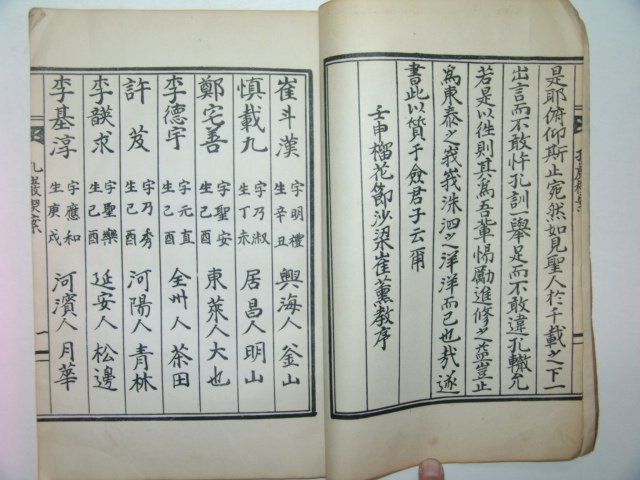 是耶俯仰斯止宛然如見聖人於千載之下一
出言而不敢忤孔訓一舉足而不敢違孔轍允
若是以徃則其爲吾輩惕勵進修之益豈止
爲東泰之峩峩洙泗之洋洋而已也哉遂
書此以質于僉君子云爾
壬申榴花節沙梁崔薰教序
崔斗漢 字明禮 生辛丑 興海人 釜山
愼載九 字乃淑 生丁未 居昌人 明山
鄭宅善 字聖安 生己酉 東萊人 大也
李德宇 字元直 生己酉 全州人 茶田
許芨 字乃秀 生己酉 河陽人 青林
李錟求 字聖樂 生己酉 延安人 松邊
李基淳 字應和 生庚戌 河濱人 月華
孔巖稧案
一